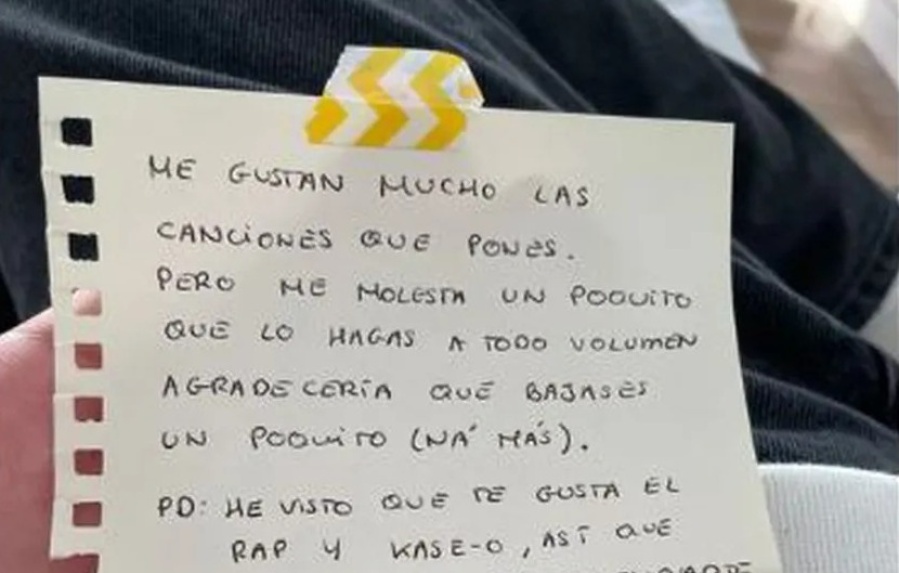 ME GUSTAN MUCHO LAS
CANCIONES QUE PONES.
PERO ME MOLESTA UN POQUITO
QUE LO HAGAS A TODO VOLUMEN
AGRADECERÍA QUE BAJASES
UN POQUITO (NA' MÁS).
PD: HE VISTO QUE TE GUSTA EL
RAP Y KASE-O, ASÍ QUE